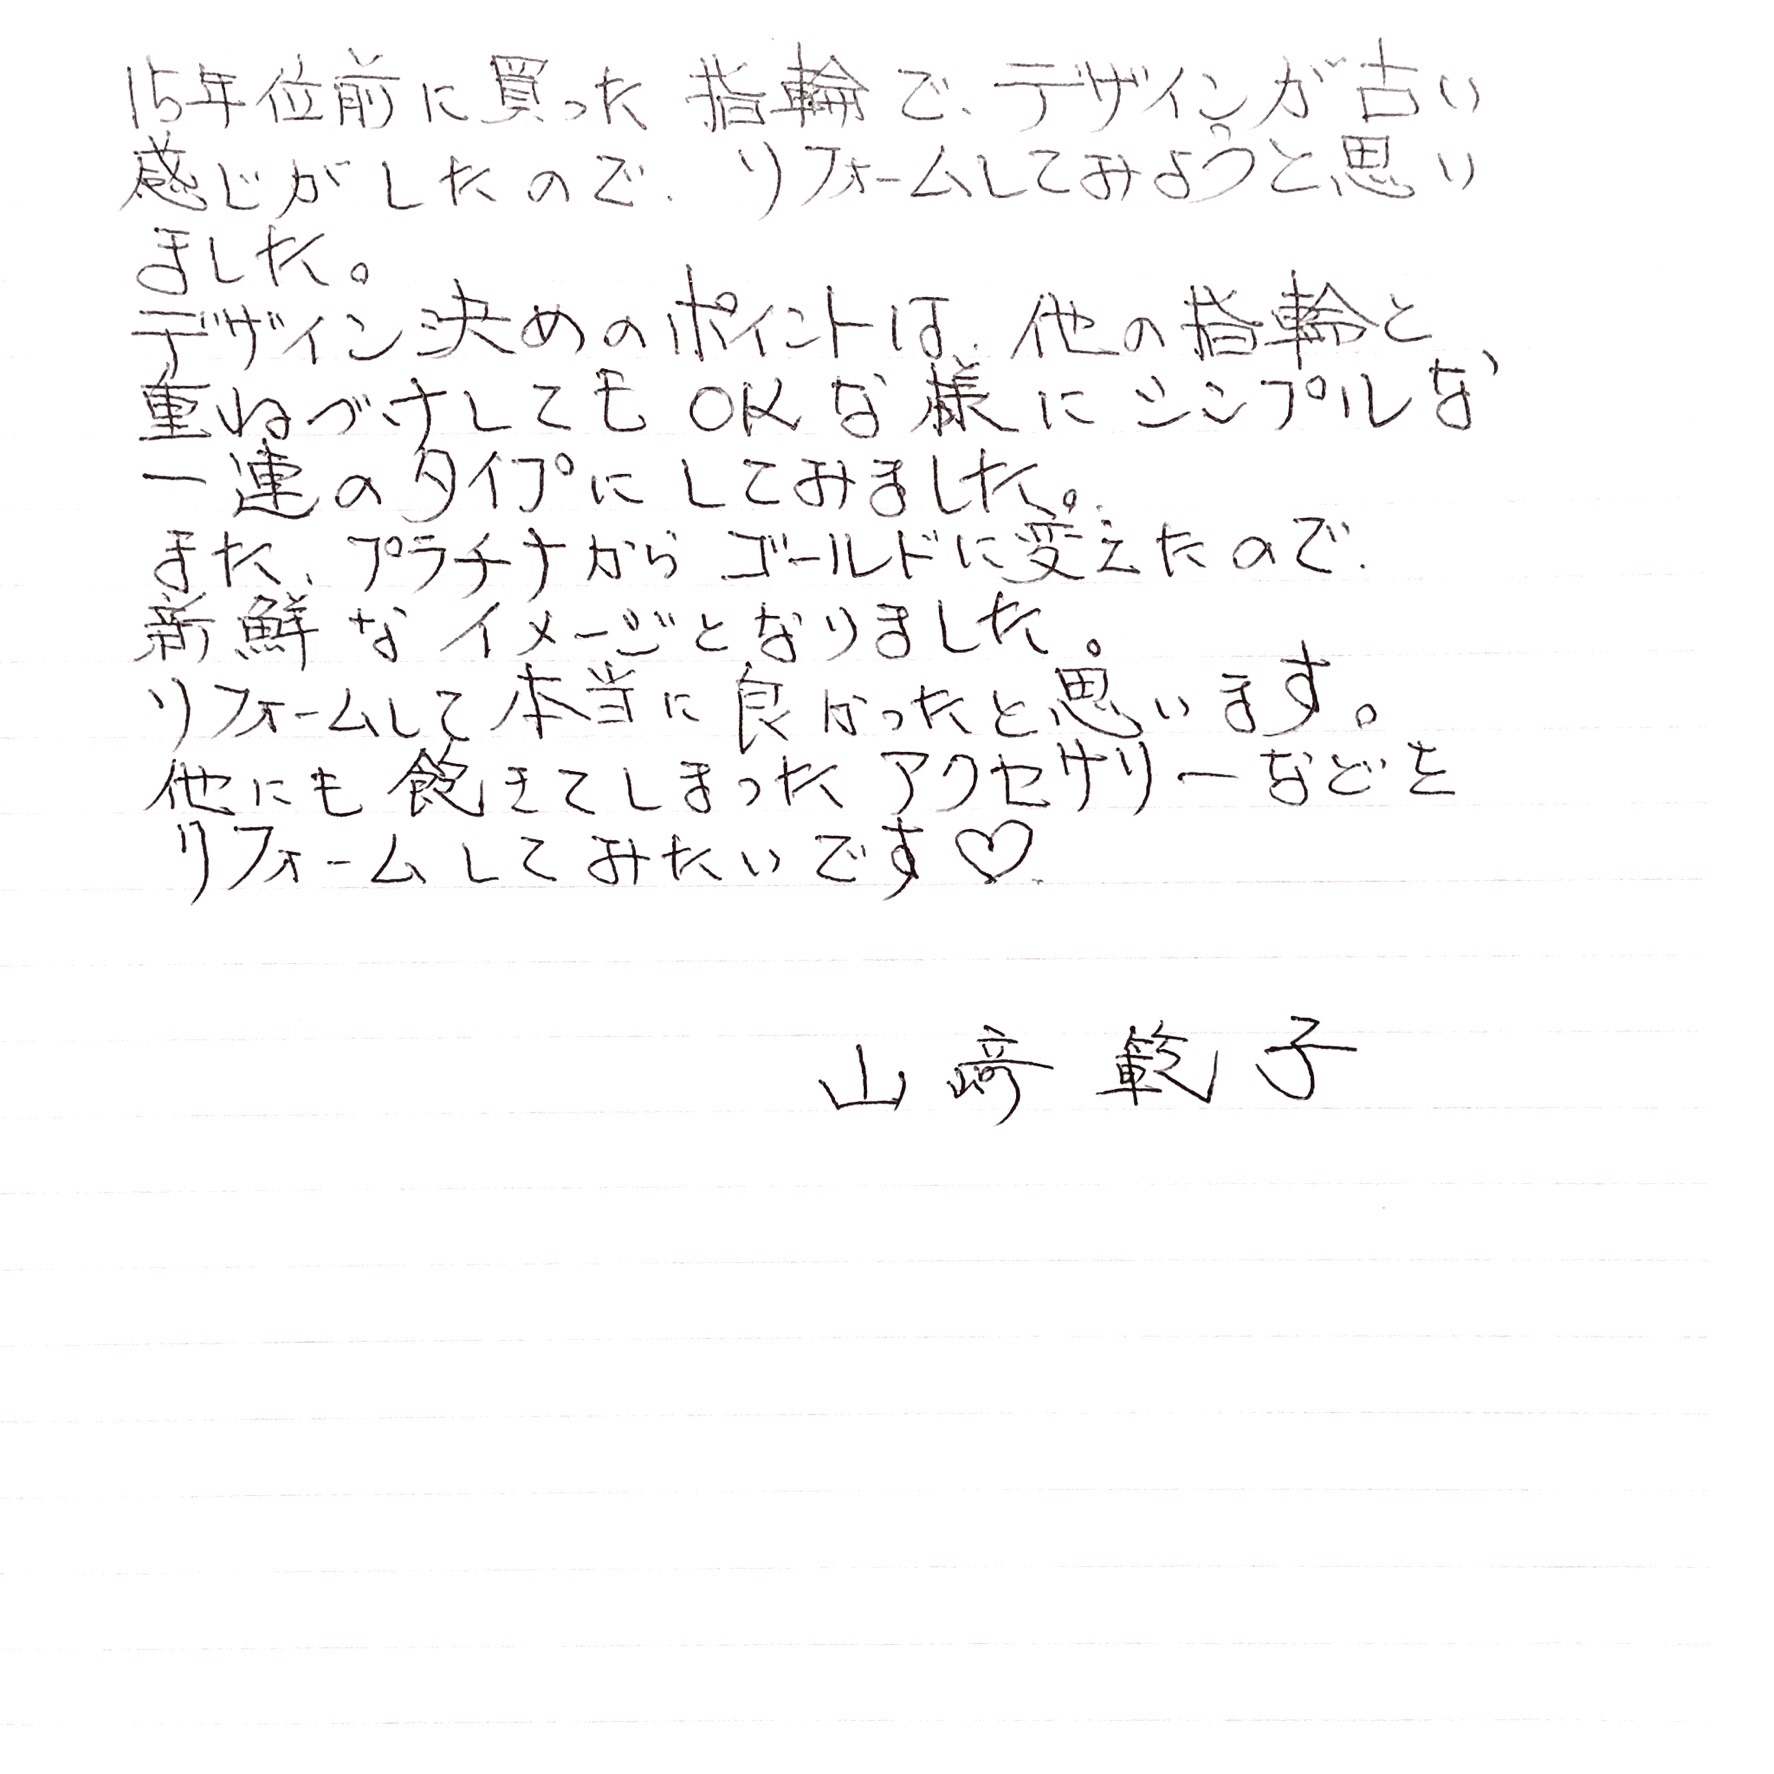 15年位前に買った指輪で、デザインが古い
感じがしたので、リフォームしてみようと思い
ました。
デザイン決めのポイントは、他の指輪と
重ねづけしてもOKな様にシンプルな
一連のタイプにしてみました。
また、プラチナからゴールドに変えたので、
新鮮なイメージとなりました。
リフォームして本当に良かったと思います。
他にも飽きてしまったアクセサリーなどを
リフォームしてみたいです♡.
山﨑 範子